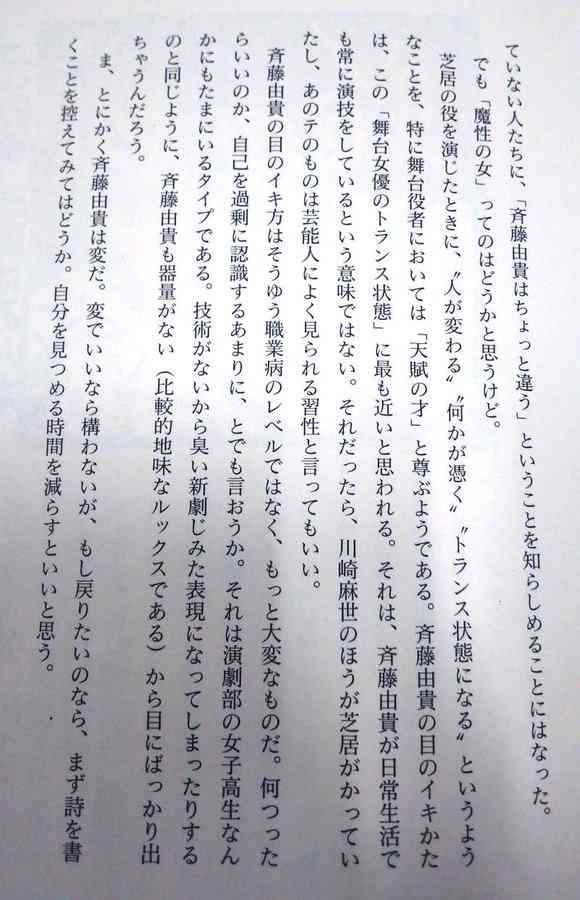 ていない人たちに、「斉藤由貴はちょっと違う」ということを知らしめることにはなった。
でも「魔性の女」ってのはどうかと思うけど。
芝居の役を演じたときに、〝人が変わる〟〝何かが憑く〟〝トランス状態になる〟というよう
なことを、特に舞台役者においては「天賦の才」と尊ぶようである。斉藤由貴の目のイキかた
は、この「舞台女優のトランス状態」に最も近いと思われる。それは、斉藤由貴が日常生活で
も常に演技をしているという意味ではない。それだったら、川崎麻世のほうが芝居がかってい
たし、あのテのものは芸能人によく見られる習性と言ってもいい。
斉藤由貴の目のイキ方はそうゆう職業病のレベルではなく、もっと大変なものだ。何つった
らいいのか、自己を過剰に認識するあまりに、とでも言おうか。それは演劇部の女子高生なん
かにもたまにいるタイプである。技術がないから臭い新劇じみた表現になってしまったりする
のと同じように、斉藤由貴も器量がない（比較的地味なルックスである）から目にばっかり出
ちゃうんだろう。
ま、とにかく斉藤由貴は変だ。変でいいなら構わないが、もし戻りたいのなら、まず詩を書
くことを控えてみてはどうか。自分を見つめる時間を減らすといいと思う。